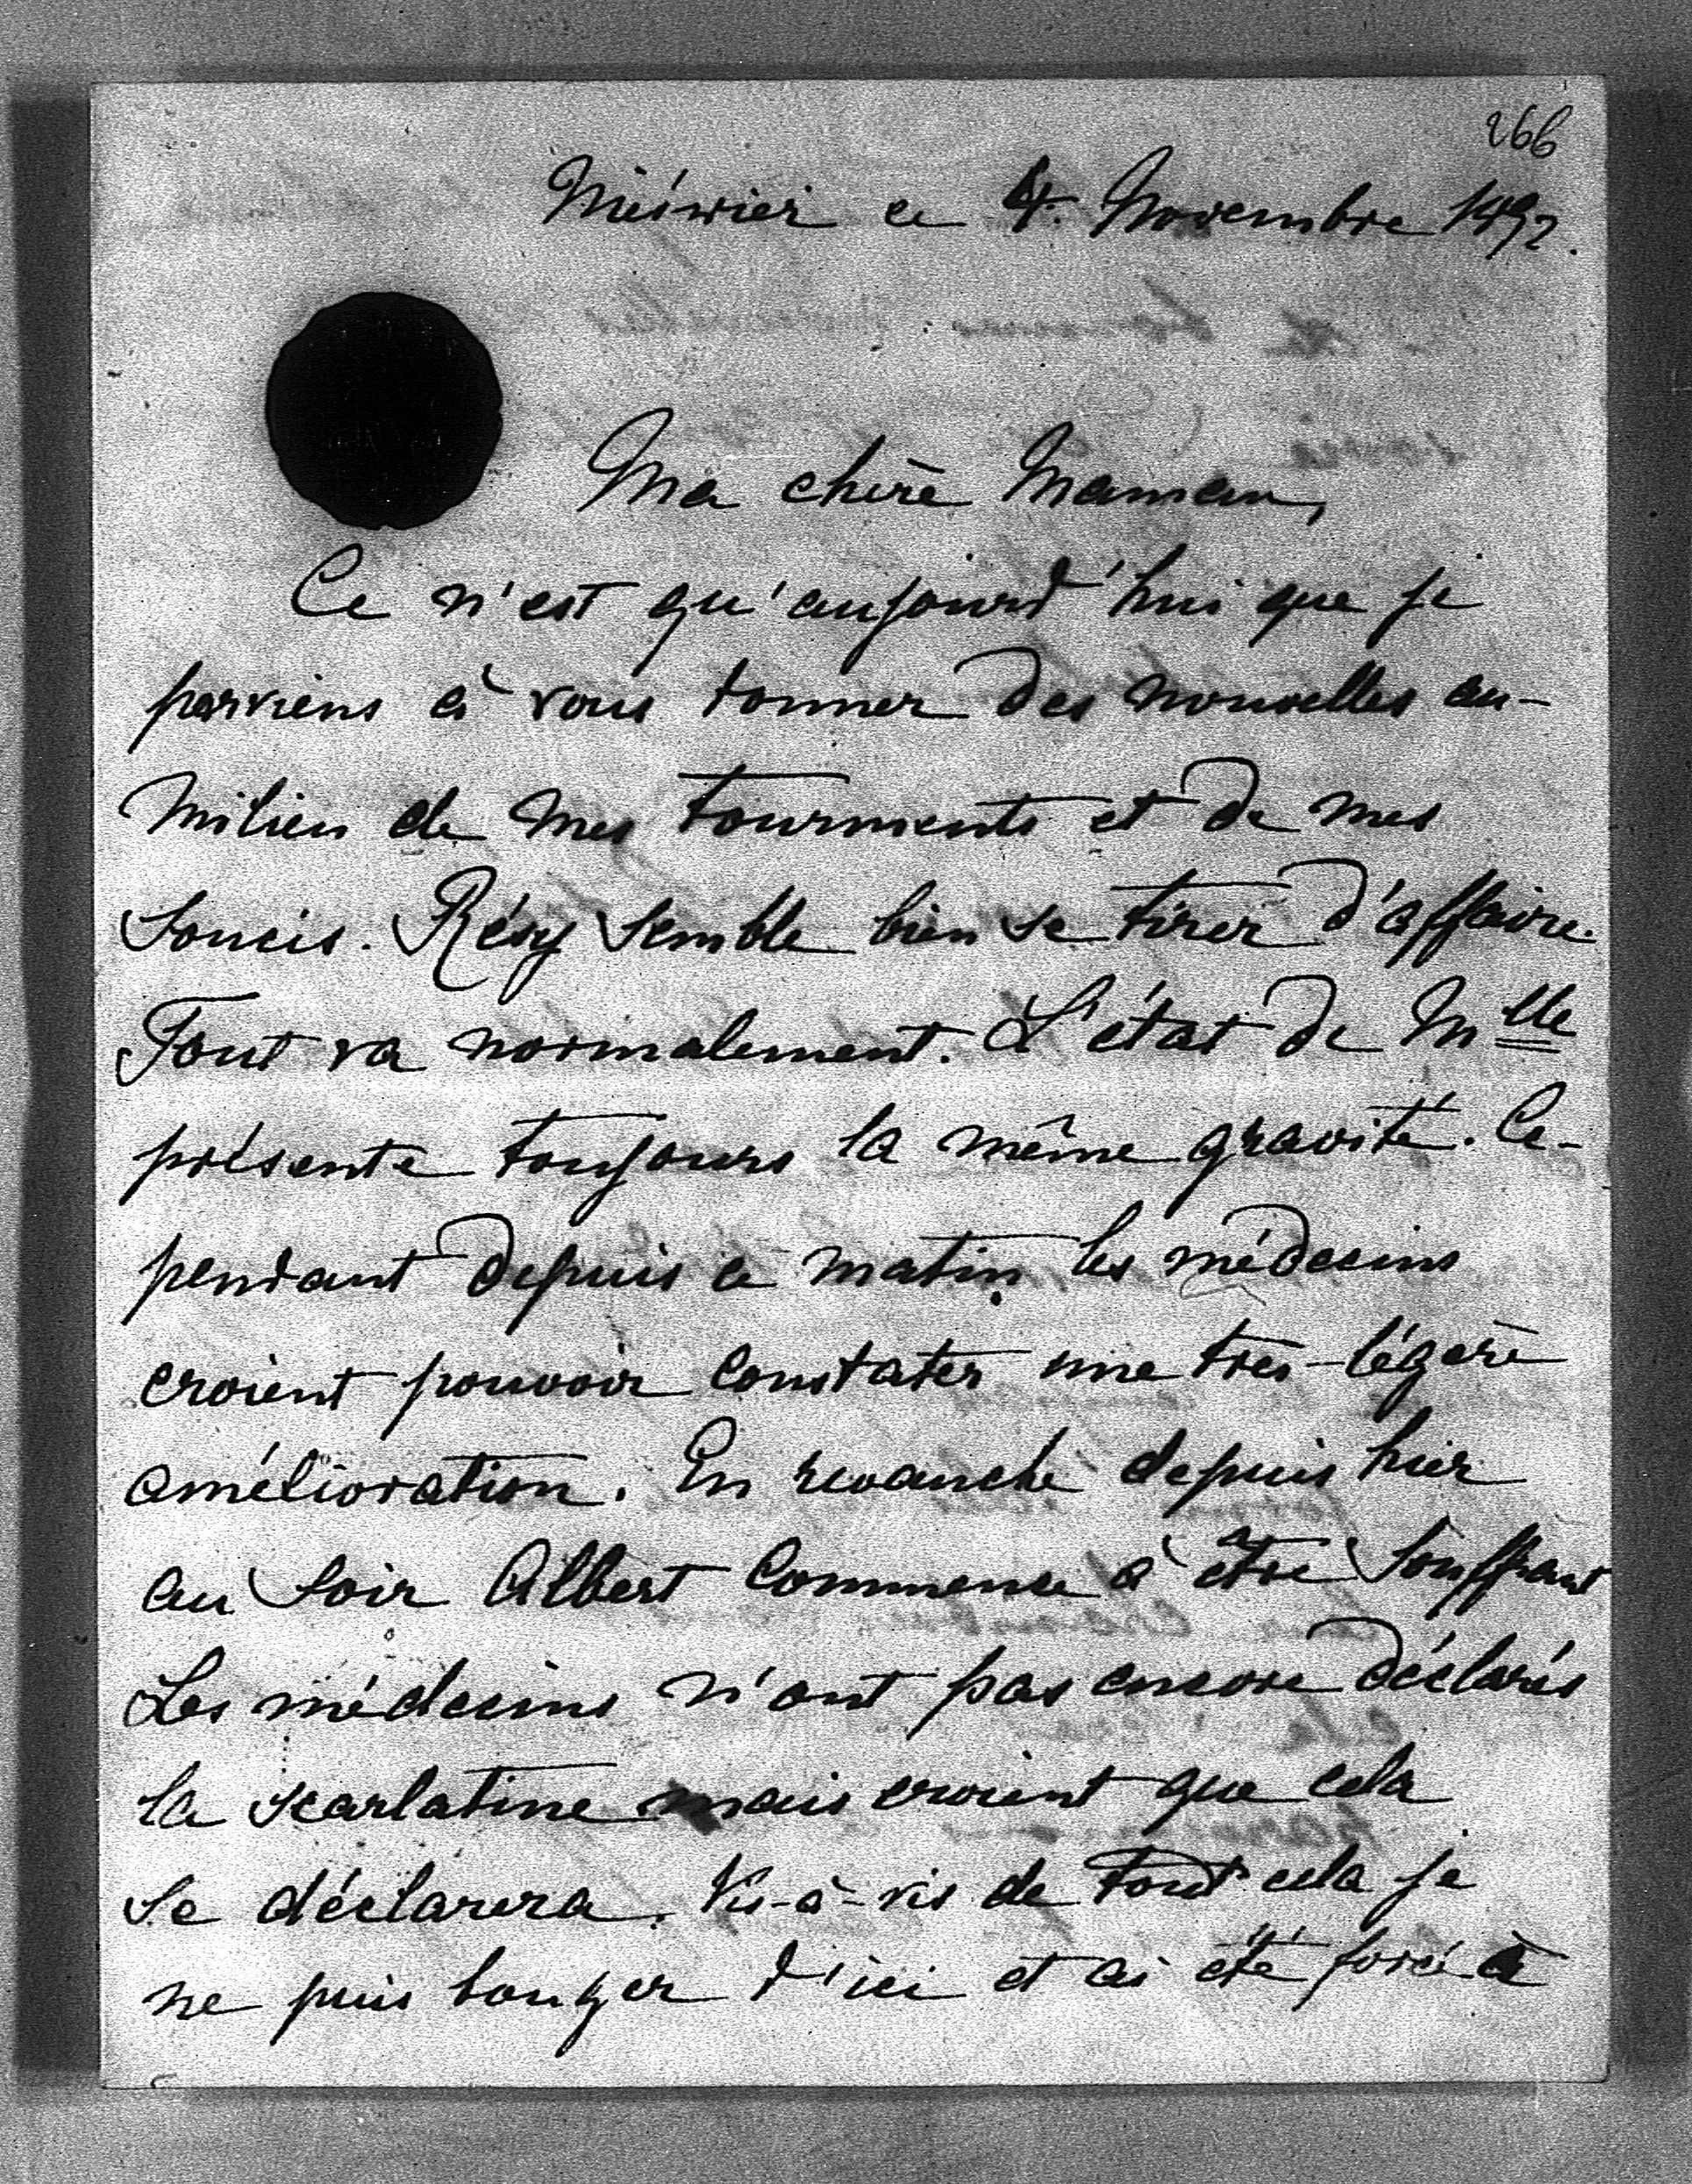 266
Nieświez ce 4. Novembre 1892.
Ma chère Maman,
Ce n'est qu'aujourd'hui que je
parviens à vous donner des nouvelles au-
milieu de mes tourments et de mes
soucis. Résy semble bien se tirer d'affaire.
Tout va normalement. L'état de Mlle
présente toujours la même gravité. Ce-
pendant depuis ce matin les médecins
croient pouvoir constater une très-légère
amélioration. En revanche depuis hier
au soir Albert commence à être souffrant
Les médecins n'ont pas encore déclarés
la scarlatine mais croient que cela
se déclarera. Vis-à-vis de tout cela je
ne puis bouger d'ici et ai été forcé à